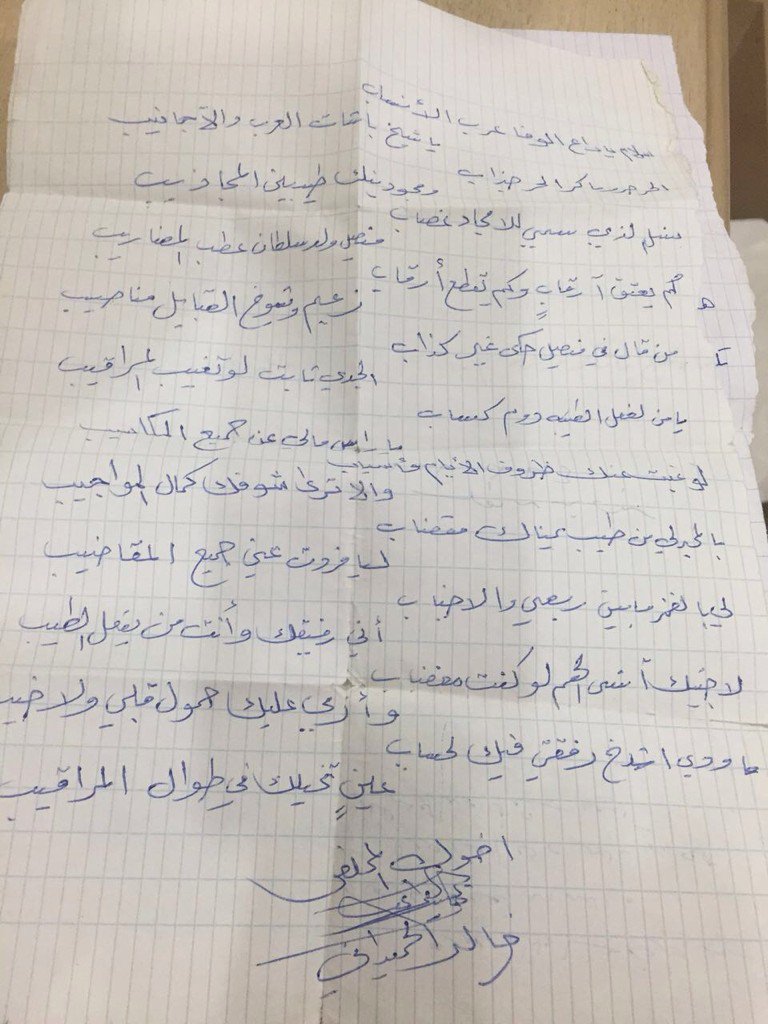 سلام يا راع الوفا عرب الأنساب
يا شيخ باشات العرب والأجانيب
الحر حر ساكر الحر جذاب
ومجودينك طيبين المجاذيب
لذي سمي للامجاد غصاب
فيصل ولد سلطان عطب المضاريب
كم يعتق آرقابٍ وكم يقطع أرقاب
زعيم وشيوخ القبايل مناصيب
من قال في فيصل حكى غير كذاب
الجدي ثابت لو تغيب المراقيب
يا من لفعل الطيبه دوم كساب
يا راس مالي عن جميع المكاسيب
لو غبت عنك ظروف الأيام وأسباب
والا ترى شوفك كمال المواجيب
من طيب يمناك مقضاب
ليا فروت عني جميع المقاضيب
الفخر مابين ربعي والاجناب
أني رفيقك وأنت من يفعل الطيب
لا جيتك أنسى الهم لو كنت مغضاب
وأرمي عليك حمول قلبي ولا
ما ودي رفقتي فيك لحساب
عينٍ تخيلك في طوال المراقيب
اخوك المخلص
خالد الحميداني